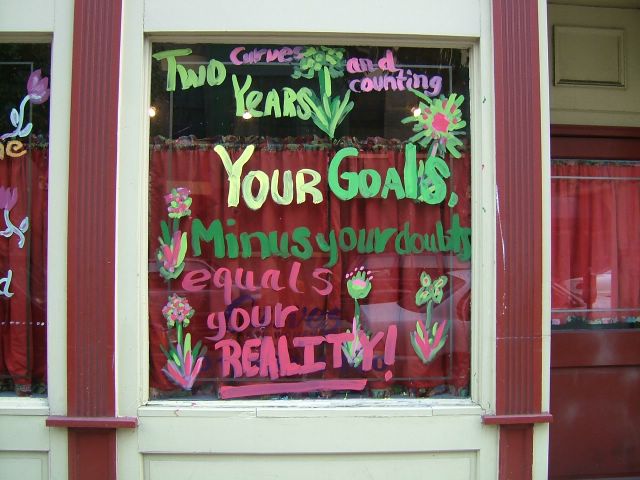 TWO Curves and
YEARS counting
YOUR GOALS,
Minus your doubts
equals
your
REALITY!